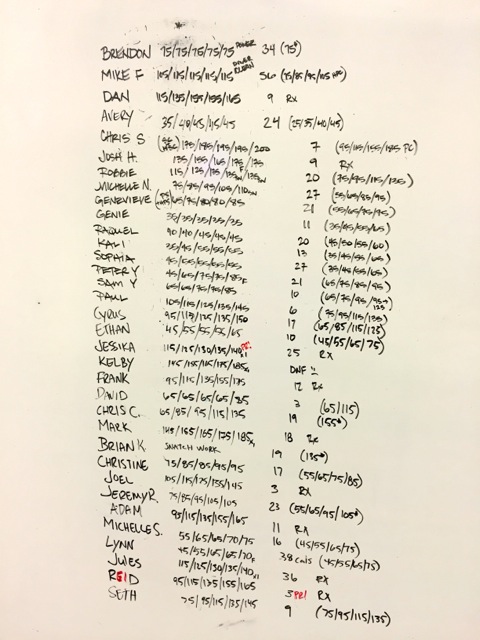 BRENDON 75/75/75/75/75 POWER 34 (75#)
MIKE F 115/115/115/115/115 POWER CLEAN 56 (75/85/95/115 HPC)
DAN 115/135/155/155/165 9 RX
AVERY 35/40/45/45/45 24 (25/35/40/45)
CHRIS S 175/195/195/195/200 7 (95/115/155/185 PC)
JOSH H. 135/155/165/175/175 9 RX
ROBBIE 115/125/175/135/135 20 (75/95/115/135)
MICHELLE N. 75/85/95/105/110 27 (55/65/85/95)
GENEVIEVE 65/75/80/80/85 21 (55/65/75/95)
GENIE 35/35/35/35/35 11 (35/45/55/65)
RAQUEL 40/40/45/45/45 20 (45/50/55/60)
KALI 35/45/55/55/55 13 (35/45/55/65)
SOPHIA 45/55/55/55/55 27 (35/45/55/65)
PETER Y 45/65/75/75/85F 21 (65/75/85/95)
SAM Y 65/65/75/75/85 10 (65/75/95/95→125)
PAUL 105/115/125/135/145 6 (75/95/115/135)
CYRUS 95/115/125/135/150 17 (65/85/115/125)
ETHAN 45/55/55/55/65 10 (45/55/65/75)
JESSIKA 115/125/130/135/140 PR! 25 RX
KELBY 145/155/165/175/185 DNF
FRANK 95/115/135/155/175 12 RX
DAVID 65/65/65/65/85 3 (65/115)
CHRIS C. 65/85/95/115/135 19 (155#)
MARK 145/155/165/175/185 18 RX
BRIAN K SNATCH WORK 19 (135#)
CHRISTINE 75/85/85/95/95 17 (55/65/75/85)
JOEL 105/115/125/135/145 3 RX
JEREMY R. 75/85/95/105/105 23 (55/65/95/105#)
ADAM 95/115/135/155/165 11 RX
MICHELLE S. 55/65/65/70/75 16 (45/55/65/75)
LYNN 45/55/65/65/70F 38 cals (45/55/65/75)
JULES 115/125/130/135/140 36 RX
REID 95/115/135/155/165 5 PR! RX
SETH 75/95/115/135/145 9 (75/95/115/135)